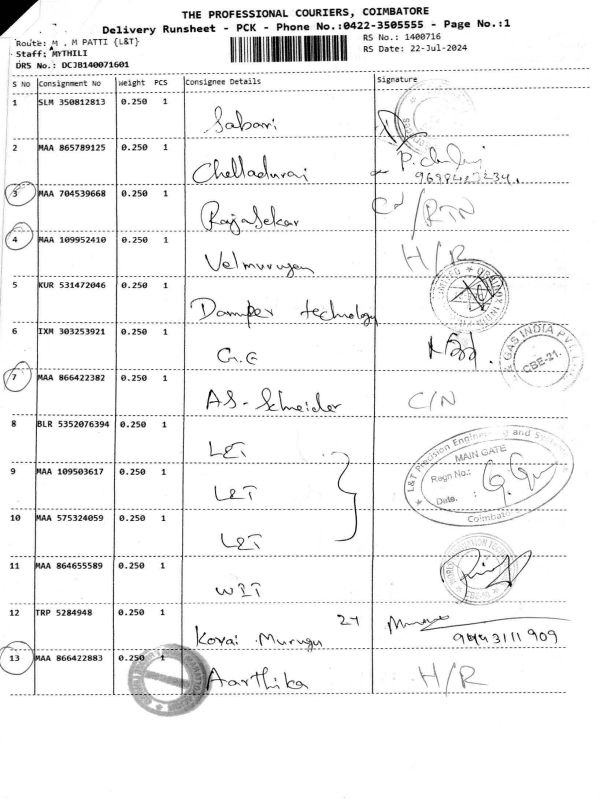 THE PROFESSIONAL COURIERS, COIMBATORE
Delivery Runsheet - PCK - Phone No.:0422-3505555 - Page No.:1
Route: M . M PATTI {L&T}
RS No.: 1400716
Staff: MYTHILI
RS Date: 22-Jul-2024
DRS No.: DCJB140071601
S No Consignment No Weight PCS Consignee Details Signature
1 SLM 350812813 0.250 1 Sabari
2 MAA 865789125 0.250 1 Chelladurai
3 MAA 704539668 0.250 1 Rajasekar /RTN
4 MAA 109952410 0.250 1 Velmurugan H/R
5 KUR 531472046 0.250 1 Damper technology
6 IXM 303253921 0.250 1 G.E
GAS INDIA PVT. CBE-21.
7 MAA 866422382 0.250 1 AS-Schneider C/N
8 BLR 5352076394 0.250 1 L&T
L&T Precision Engineering and Systems
MAIN GATE
9 MAA 109503617 0.250 1 L&T
Regn No.:
Date. :
10 MAA 575324059 0.250 1 L&T
Coimbatore
11 MAA 864655589 0.250 1 WIT
12 TRP 5284948 0.250 1 Kovai Murugu 24
13 MAA 866422883 0.250 1 Aarthika H/R